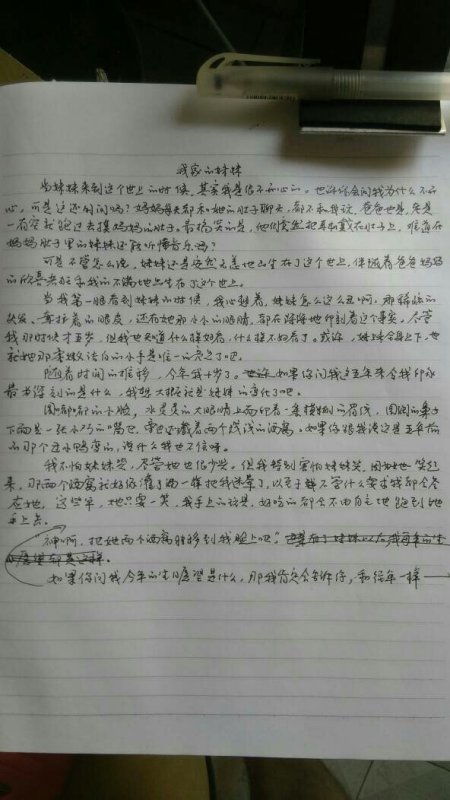 我家的妹妹
当妹妹来到这个世上的时候,其实我是很不开心的。也许你会问我为什么不开
心,可是这还用问吗?妈妈每天都和她的肚子聊天,都不和我说,爸爸也是,总是
一有空就跑过去摸妈妈的肚子。最搞笑的是,他们竟然把耳机戴在肚子上,难道在
妈妈肚子里的妹妹还能听懂音乐吗?
可是不管怎么说,妹妹还是安然无恙地出生在了这个世上,伴随着爸爸妈妈
的欣喜和我的不满地出生在了这个世上。
当我第一眼看到妹妹的时候,我心想着,妹妹怎么这么丑啊,那稀疏的
头发、耷拉着的眼皮,还有她那小小的眼睛,都在深深地印刻着这个事实。尽管
我那时候才五岁,但我也知道什么样好看,什么样不好看了。或许,妹妹全身上下,也
就她那雪嫩洁白的小手是唯一的亮点了吧。
随着时间的推移,今年我十岁了。如果你问我这五年来令我印象
最为深刻的是什么,我想大概就是妹妹的变化了吧。
圆嘟嘟的小脸,水灵灵的大眼睛上面印着一条模糊的眉线,圆润的鼻子
下面是一张小巧的嘴巴,旁边还藏着两个浅浅的酒窝。如果你跟我说这是五年前
的那个丑小鸭变的,说什么我也不信呀。
我不怕妹妹哭,尽管她也很少哭。但我特别害怕妹妹笑,因为她一笑起
来,那两个酒窝就好似灌了酒一样把我迷晕了,以至于她不管什么要求我都会答
应她,这些年,她只要一笑,我手上的玩具,好吃的都会不由自主地跑到她
手上去。
神啊,把她两个酒窝转移到我脸上吧!
如果你问我今年的生日愿望是什么,那我肯定会告诉你,和往年一样——